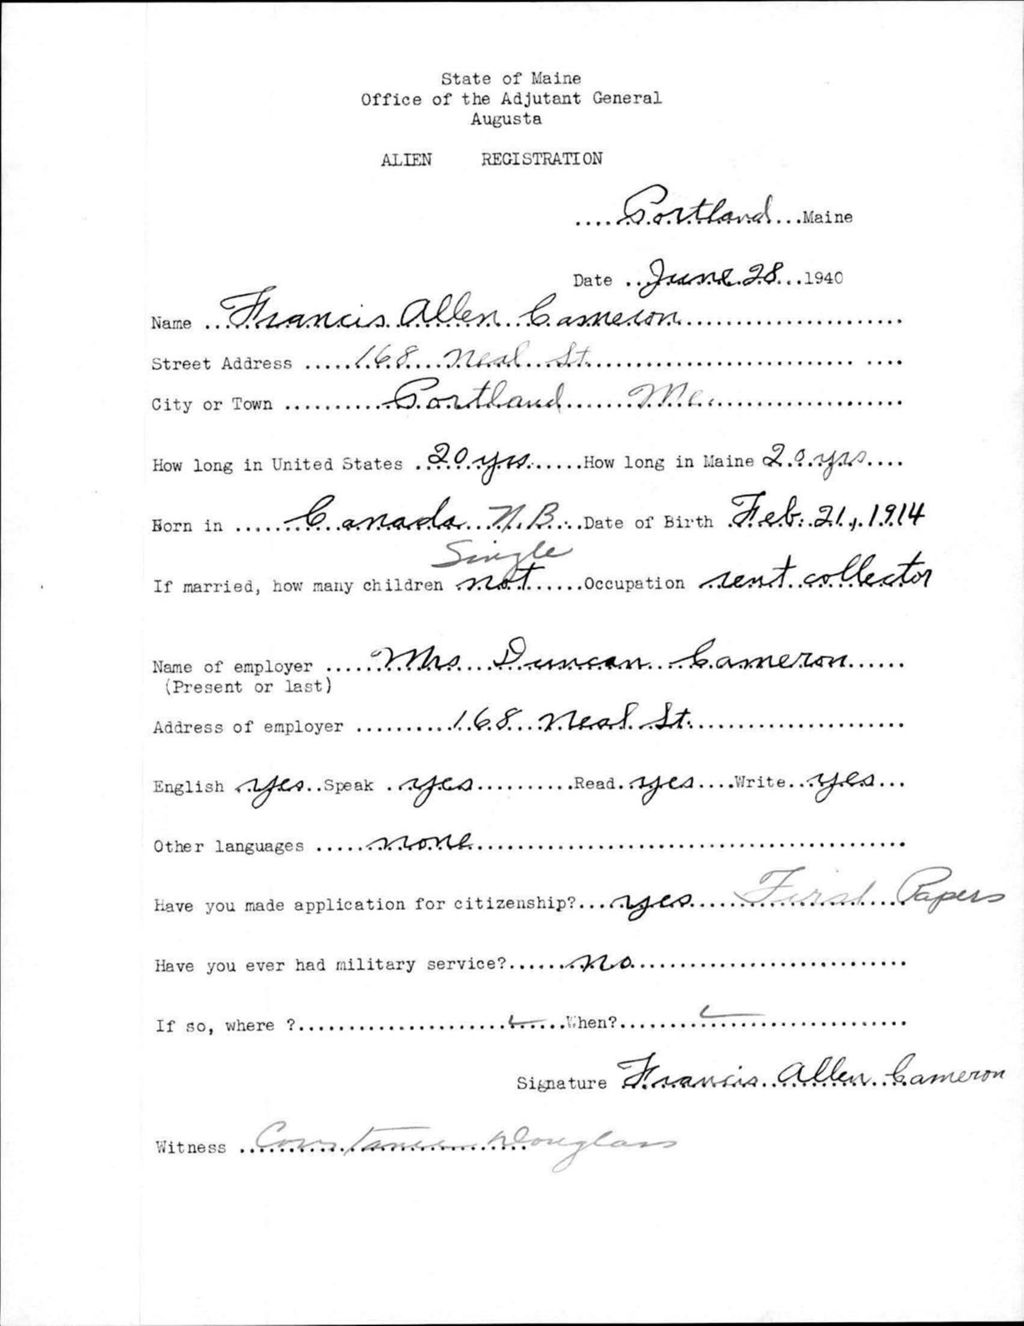 State of Maine
Office of the Adjutant General
Augusta
ALIEN REGISTRATION
....Portland...Maine
Date ..June 28...1940
Name ..Francis Allen Cameron........................
Street Address .....168 Neal St..............................
City or Town ..........Portland.......Me......................
How long in United States .20 yrs......How long in Maine 20 yrs....
Born in .....Canada N.B...Date of Birth Feb. 21, 1914
Single
If married, how many children not......Occupation rent collector
Name of employer .....Mrs Duncan Cameron......
(Present or last)
Address of employer ..........168 Neal St.......................
English yes..Speak .yes..........Read.yes....Write..yes...
Other languages .....none.............................................
Have you made application for citizenship?...yes.....First Papers
Have you ever had military service?......no............................
If so, where ?..........................When?..............................
Signature Francis Allen Cameron
Witness ..Constance Douglass